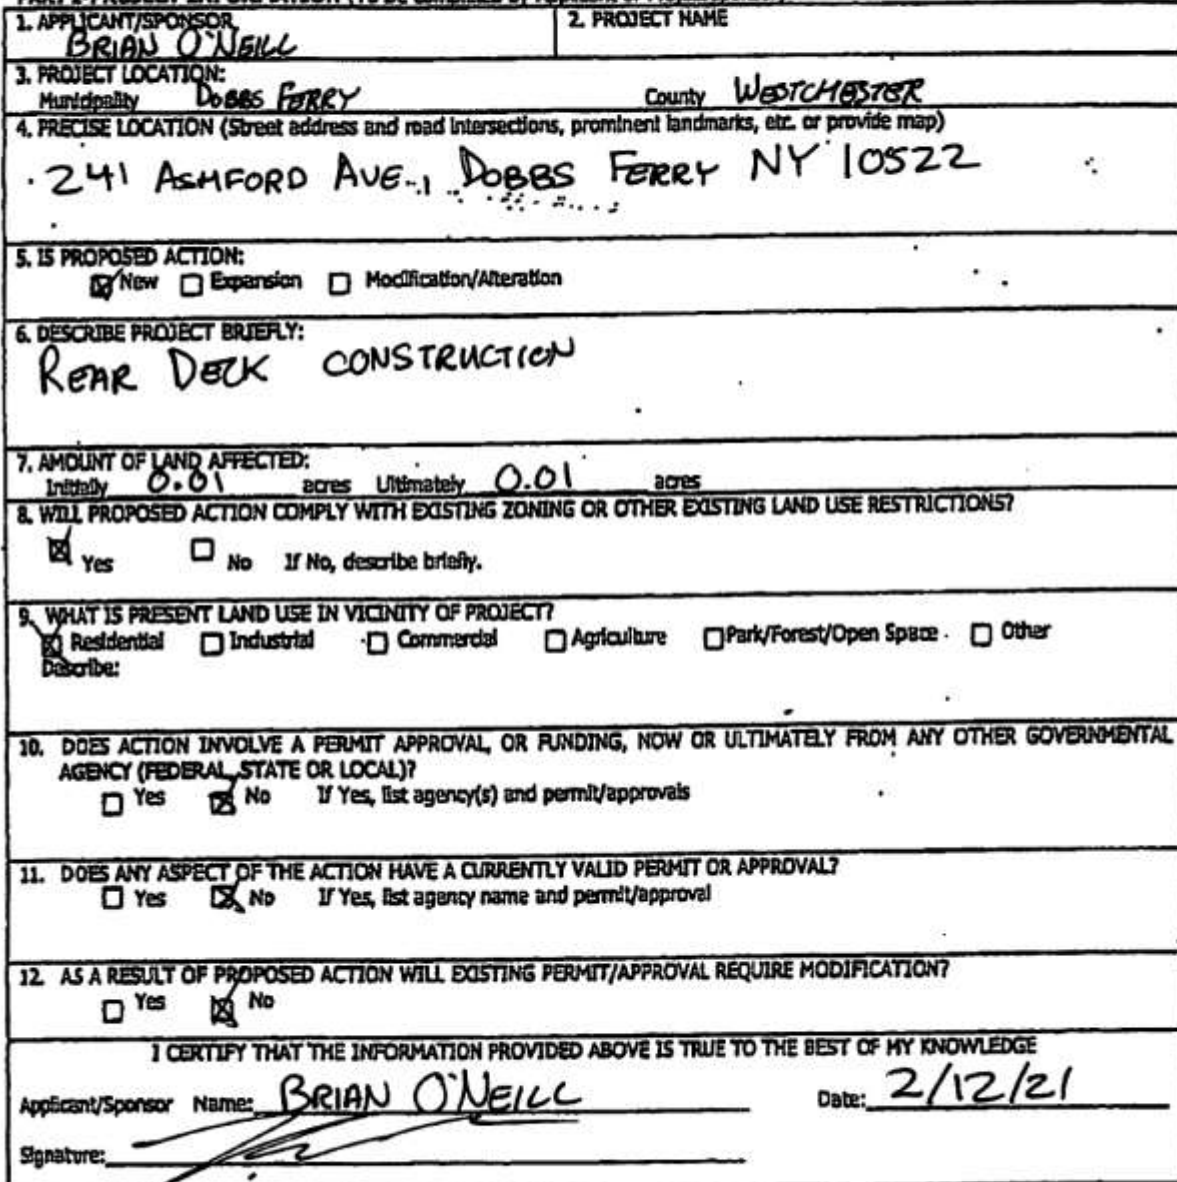 1. APPLICANT/SPONSOR 2. PROJECT NAME
BRIAN O'NEILL
3. PROJECT LOCATION:
Municipality DOBBS FERRY County WESTCHESTER
4. PRECISE LOCATION (Street address and road intersections, prominent landmarks, etc. or provide map)
241 ASHFORD AVE., DOBBS FERRY NY 10522
5. IS PROPOSED ACTION:
☒ New ☐ Expansion ☐ Modification/Alteration
6. DESCRIBE PROJECT BRIEFLY:
REAR DECK CONSTRUCTION
7. AMOUNT OF LAND AFFECTED:
Initially 0.01 acres Ultimately 0.01 acres
8. WILL PROPOSED ACTION COMPLY WITH EXISTING ZONING OR OTHER EXISTING LAND USE RESTRICTIONS?
☒ Yes ☐ No If No, describe briefly.
9. WHAT IS PRESENT LAND USE IN VICINITY OF PROJECT?
☒ Residential ☐ Industrial ☐ Commercial ☐ Agriculture ☐ Park/Forest/Open Space ☐ Other
Describe:
10. DOES ACTION INVOLVE A PERMIT APPROVAL, OR FUNDING, NOW OR ULTIMATELY FROM ANY OTHER GOVERNMENTAL
AGENCY (FEDERAL, STATE OR LOCAL)?
☐ Yes ☒ No If Yes, list agency(s) and permit/approvals
11. DOES ANY ASPECT OF THE ACTION HAVE A CURRENTLY VALID PERMIT OR APPROVAL?
☐ Yes ☒ No If Yes, list agency name and permit/approval
12. AS A RESULT OF PROPOSED ACTION WILL EXISTING PERMIT/APPROVAL REQUIRE MODIFICATION?
☐ Yes ☒ No
I CERTIFY THAT THE INFORMATION PROVIDED ABOVE IS TRUE TO THE BEST OF MY KNOWLEDGE
Applicant/Sponsor Name: BRIAN O'NEILL Date: 2/12/21
Signature: